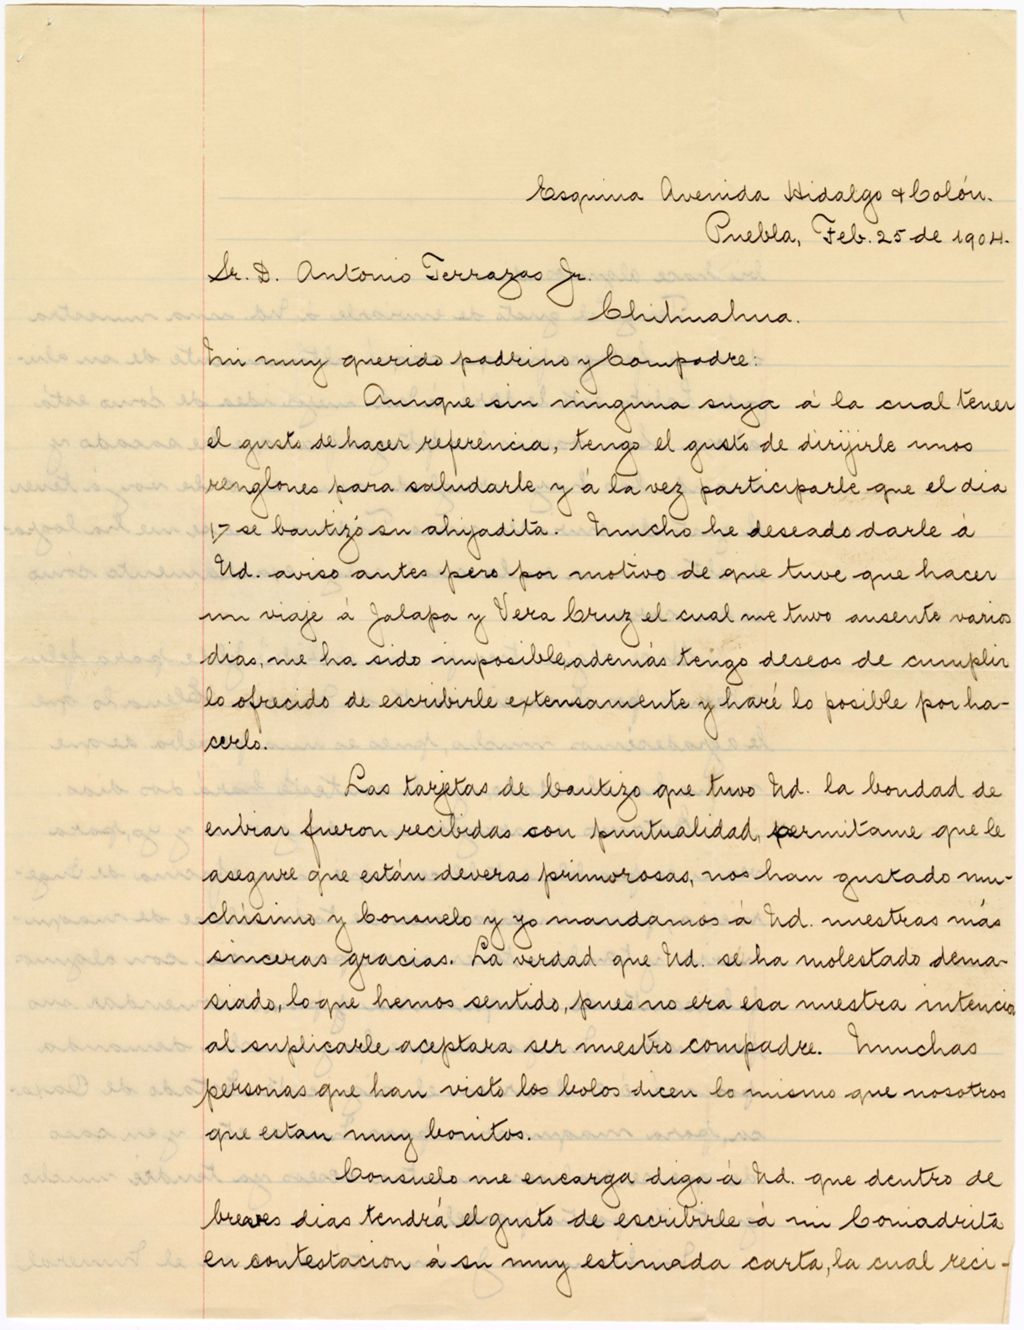 Esquina Avenida Hidalgo & Colón.
Puebla, Feb. 25 de 1904.
Sr. D. Antonio Terrazas Jr.
Chihuahua.
Mi muy querido padrino y Compadre:
Aunque sin ninguna suya á la cual tener
el gusto de hacer referencia, tengo el gusto de dirijirle unos
renglones para saludarle y á la vez participarle que el dia
17 se bautizó su ahijadita. Mucho he deseado darle á
Ud. aviso antes pero por motivo de que tuve que hacer
un viaje á Jalapa y Vera Cruz el cual me tuvo ausente varios
dias, me ha sido imposible, además tengo deseos de cumplir
lo ofrecido de escribirle extensamente y haré lo posible por ha-
cerlo.
Las tarjetas de bautizo que tuvo Ud. la bondad de
enbiar fueron recibidas con puntualidad, permitame que le
asegure que están deveras primorosas, nos han gustado mu-
chísimo y Consuelo y yo mandamos á Ud. nuestras más
sinceras gracias. La verdad que Ud. se ha molestado dema-
siado, lo que hemos sentido, pues no era esa nuestra intencion
al suplicarle aceptara ser nuestro compadre. Muchas
personas que han visto los bolos dicen lo mismo que nosotros
que estan muy bonitos.
Consuelo me encarga diga á Ud. que dentro de
breves dias tendrá el gusto de escribirle á mi Comadrita
en contestacion á su muy estimada carta, la cual reci-